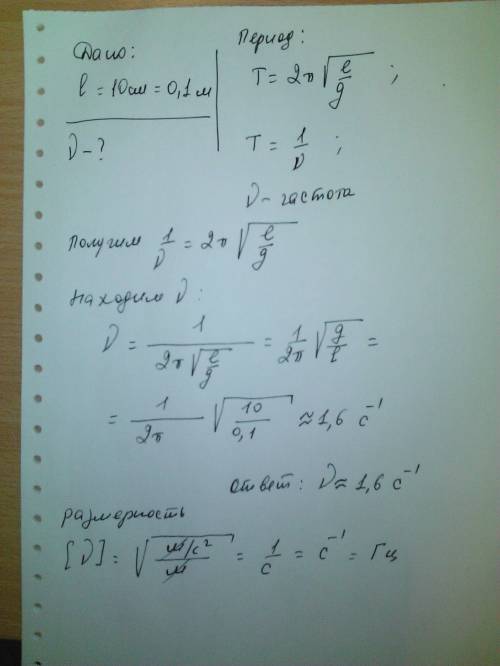 Дано:
l = 10см = 0,1м
ν - ?
Период:
T = 2π√(l/g) ;
T = 1/ν ;
ν - частота
Получим 1/ν = 2π√(l/g)
Находим ν :
ν = 1/(2π√(l/g)) = 1/2π √(g/l) =
= 1/2π √(10/0,1) ≈ 1,6 с⁻¹
Ответ: ν ≈ 1,6 с⁻¹
Размерность
[ν] = √((м/с²)/м) = 1/с = с⁻¹ = Гц